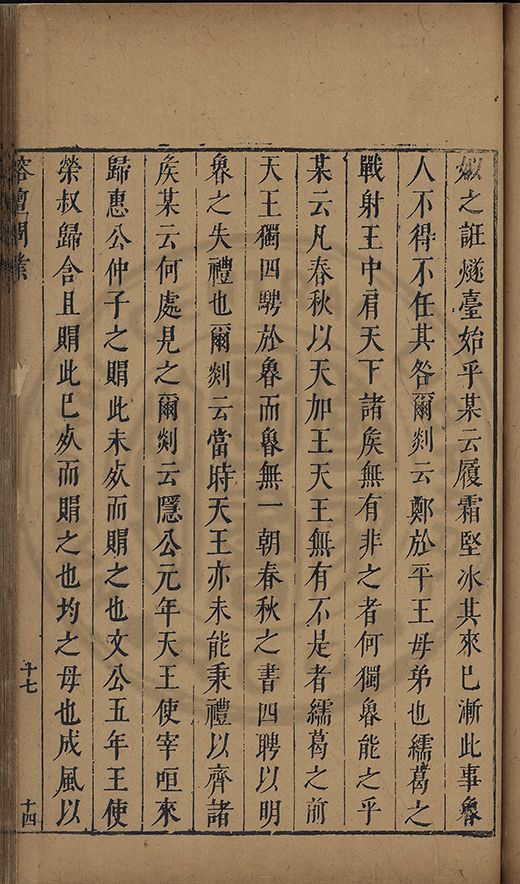 姒之誑燧臺始乎某云履霜堅冰其來已漸此事魯
人不得不任其咎爾剡云鄭於平王母弟也繻葛之
戰射王中肩天下諸矦無有非之者何獨魯能之乎
某云凡春秋以天加王天王無有不是者繻葛之前
天王獨四騁於魯而魯無一朝春秋之書四聘以明
魯之失禮也爾剡云當時天王亦未能秉禮以齊諸
矦某云何處見之爾剡云隱公元年天王使宰咺來
歸惠公仲子之賵此未㱙而賵之也文公五年王使
榮叔歸含且賵此已㱙而賵之也均之母也成風以
榕壇問業
十七
十四